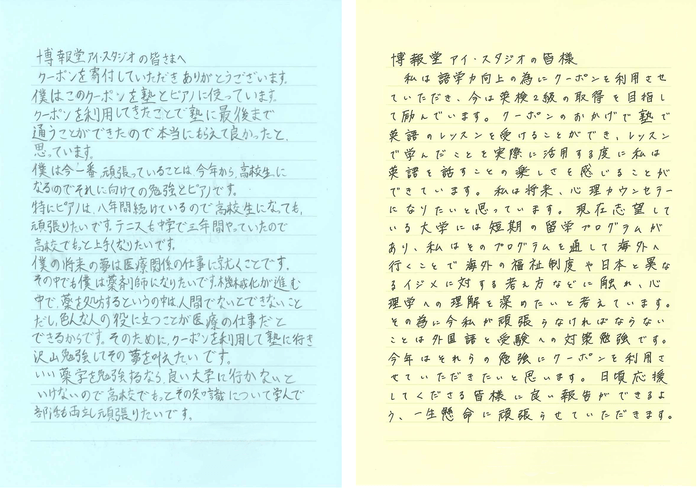 博報堂アイ・スタジオの皆さまへ
クーポンを寄付していただきありがとうございます。
僕はこのクーポンを塾とピアノに使っています。
クーポンを利用してきたことで塾に最後まで
通うことができたので本当にもらえて良かったと
思っています。
僕は今一番頑張っていることは今年から高校生に
なるのでそれに向けての勉強とピアノです。
特にピアノは、八年間続けているので高校生になっても、
頑張りたいです。テニスも中学で三年間やっていたので
高校でもっと上手くなりたいです。
僕の将来の夢は医療関係の仕事に就くことです。
その中でも僕は薬剤師になりたいです。機械化が進む
中で、薬を処方するというのは人間でないとできないこと
だし、色んな人の役に立つことが医療の仕事だと
できるからです。そのために、クーポンを利用して塾に行き
沢山勉強してその夢を叶えたいです。
いい薬学を勉強するなら、良い大学に行かないと
いけないので高校でもっとその知識について学んで
部活も両立し頑張りたいです。
博報堂アイ・スタジオの皆様
私は語学力向上の為にクーポンを利用させ
ていただき、今は英検2級の取得を目指し
て励んでいます。クーポンのおかげで塾で
英語のレッスンを受けることができ、レッスン
で学んだことを実際に活用する度に私は
英語を話すことの楽しさを感じることが
できています。私は将来、心理カウンセラー
になりたいと思っています。現在志望して
いる大学には短期の留学プログラムが
あり、私はそのプログラムを通して海外へ
行くことで海外の福祉制度や日本と異な
るイジメに対する考え方などに触れ、心
理学への理解を深めたいと考えています。
その為に今私が頑張らなければならない
ことは外国語と受験への対策勉強です。
今年はそれらの勉強にクーポンを利用さ
せていただきたいと思います。日頃応援
してくださる皆様に良い報告ができるよ
う、一生懸命に頑張らせていただきます。